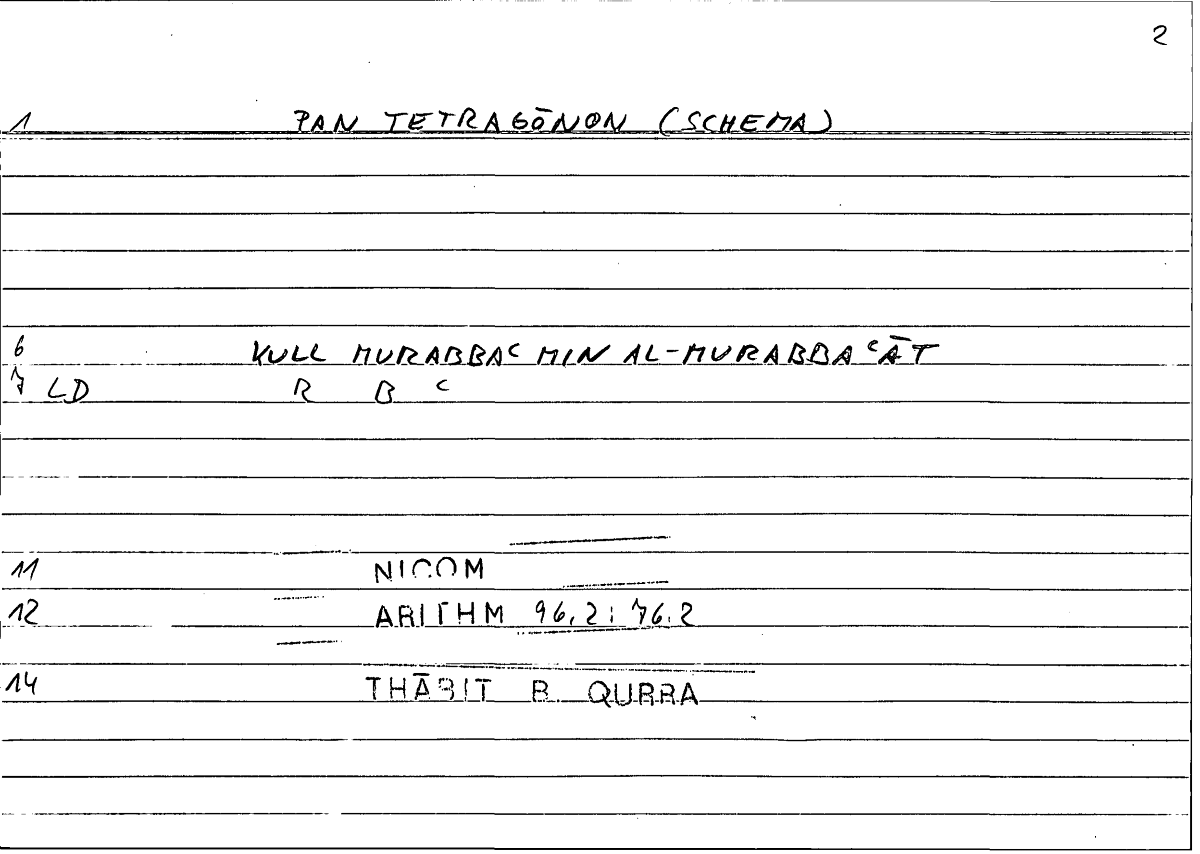 2
1 PAN TETRAGŌNON (SCHEMA)
6 KULL MURABBAᶜ MIN AL-MURABBAᶜĀT
7 LD R B ᶜ
11 NICOM
12 ARITHM 96,2 : 76.2
14 THĀBIT B. QURRA